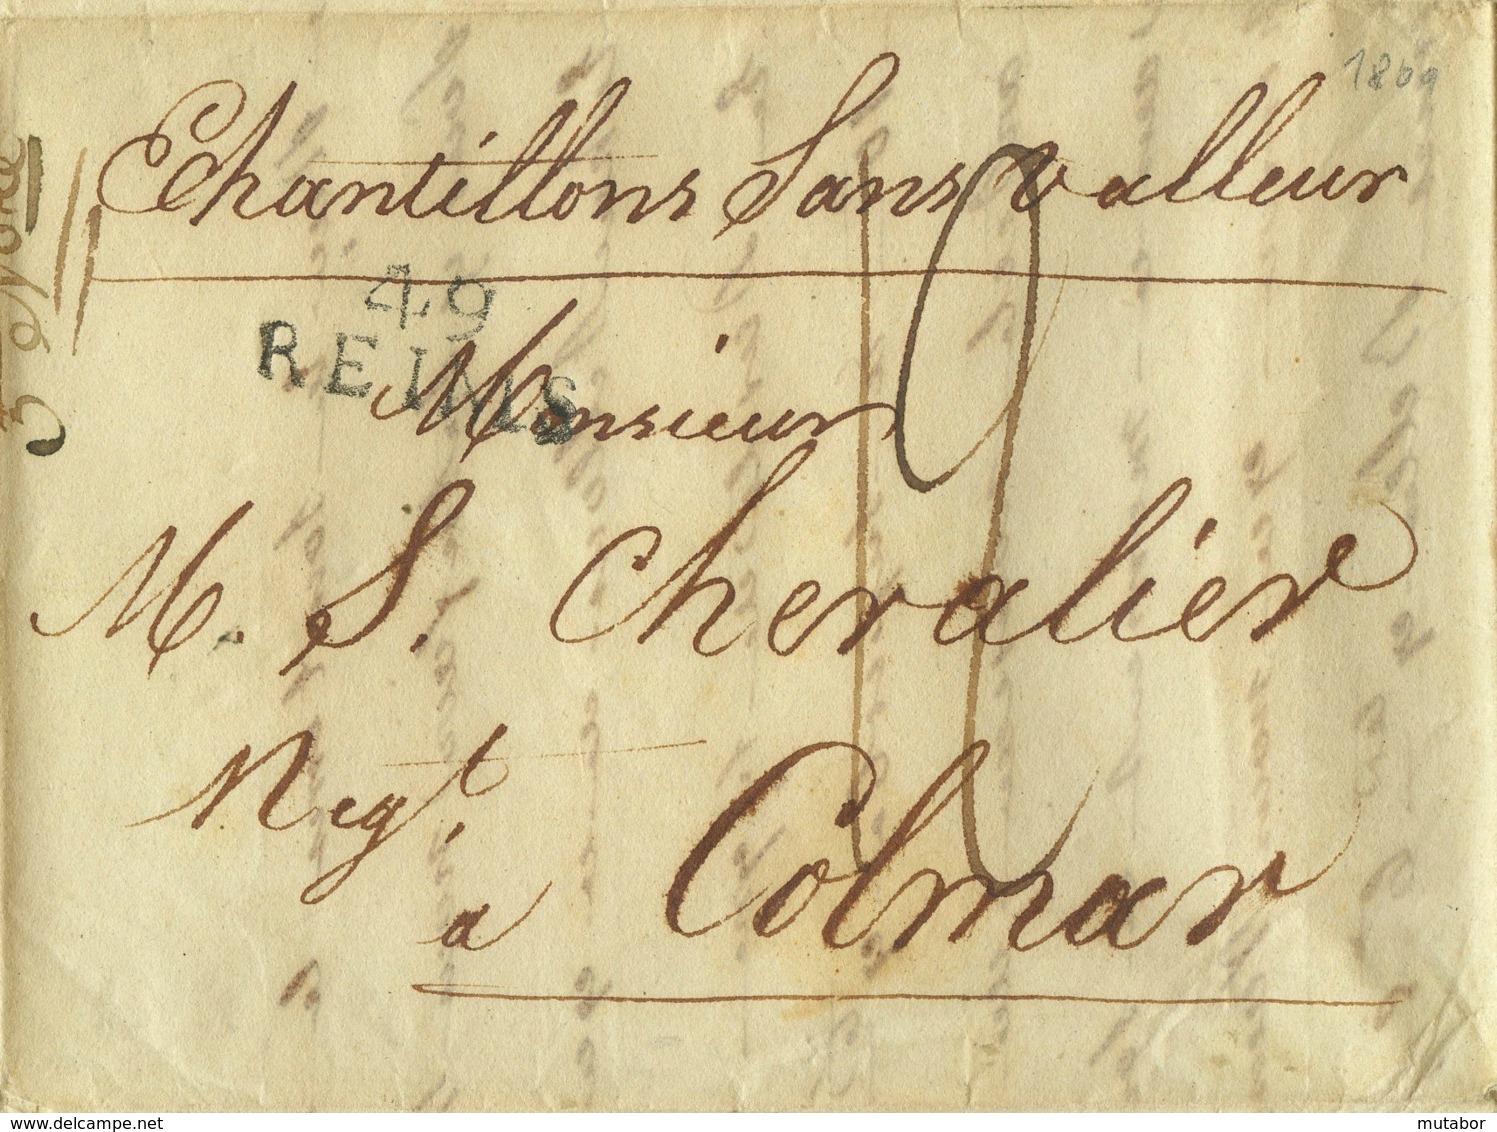 1809
Echantillons Sans valleur
49
REIMS
Monsieur
M. S. Chevalier
Negt.
a Colmar
www.delcampe.net
mutabor